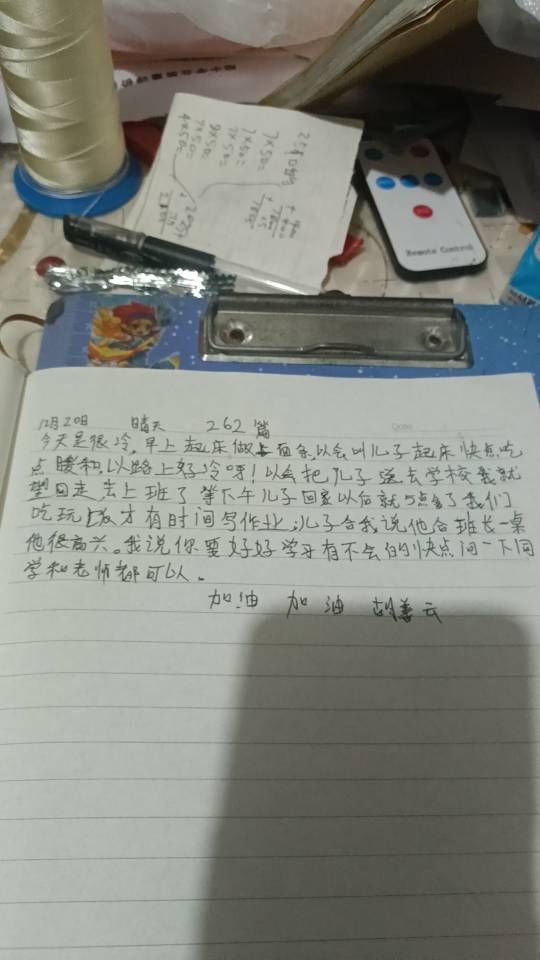 7×50=
7×50=
7×50=
9×50=
7×50=
4×50=
Remote Control
Date
12月20日 晴天 262篇
今天是很冷,早上起床做占面条,以会叫儿子起床快点吃
点暖和,以路上好冷呀!以会把儿子送去学校我就
望回走去上班了等下午儿子回家以后就5点多了我们
吃玩饭才有时间写作业,儿子合我说他合班长一桌
他很高兴。我说你要好好学习有不会的快点问一下同
学和老师都可以。
加油 加油 胡善云